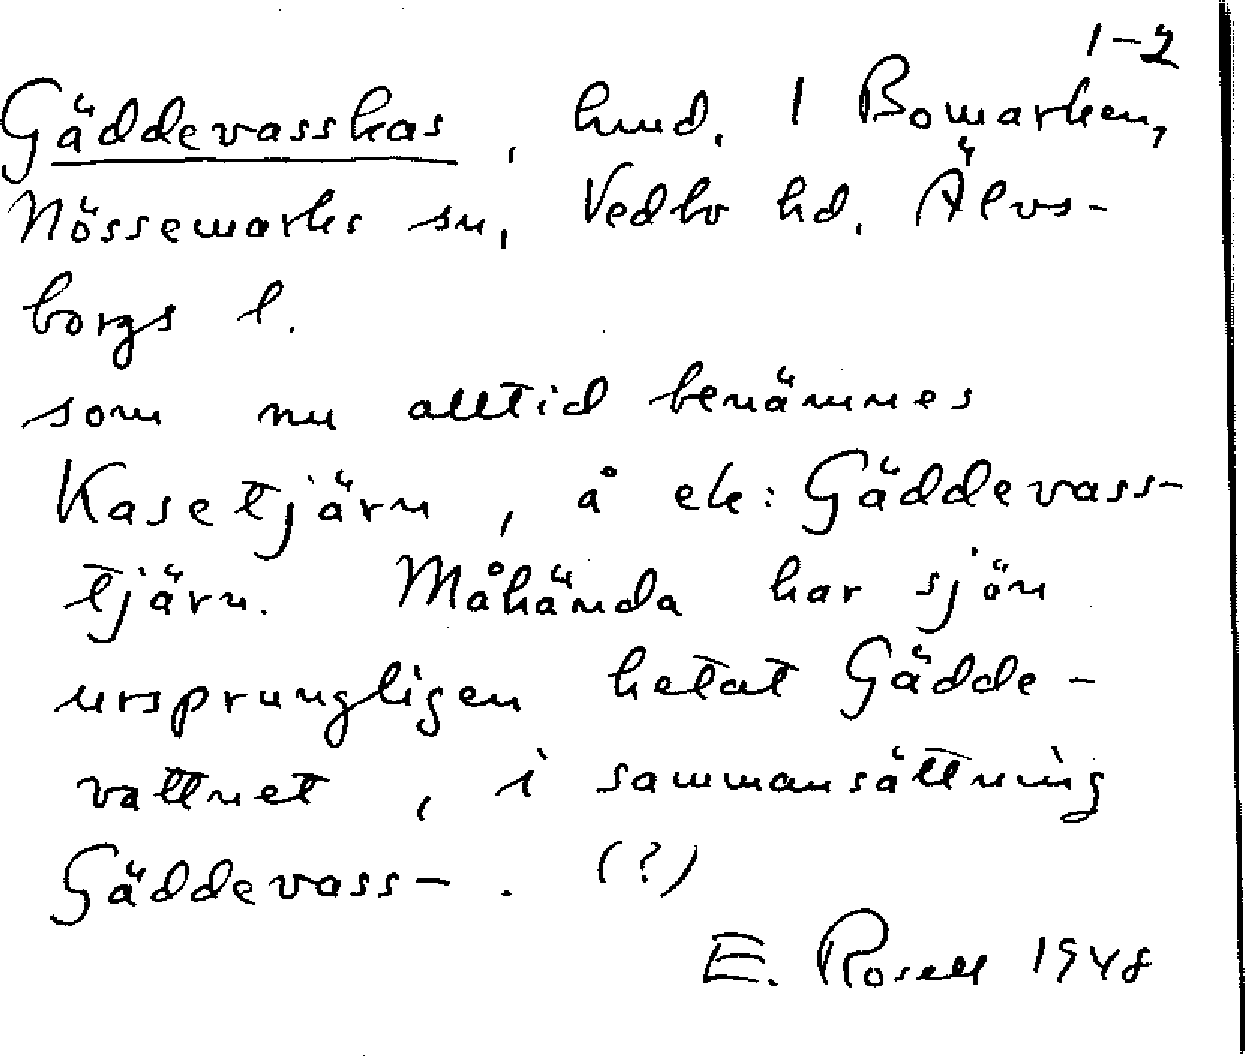 1-2
Gäddevasskas, hmd. 1 Bomarken,
Nössemarks sn, Vedbo hd. Älvs-
borgs l.
som nu alltid benämnes
Kasetjärn, å ek: Gäddevass-
tjärn. Måhända har sjön
ursprungligen hetat Gädde-
vattnet, i sammansättning
Gäddevass-. (?)
E. Rosell 1948